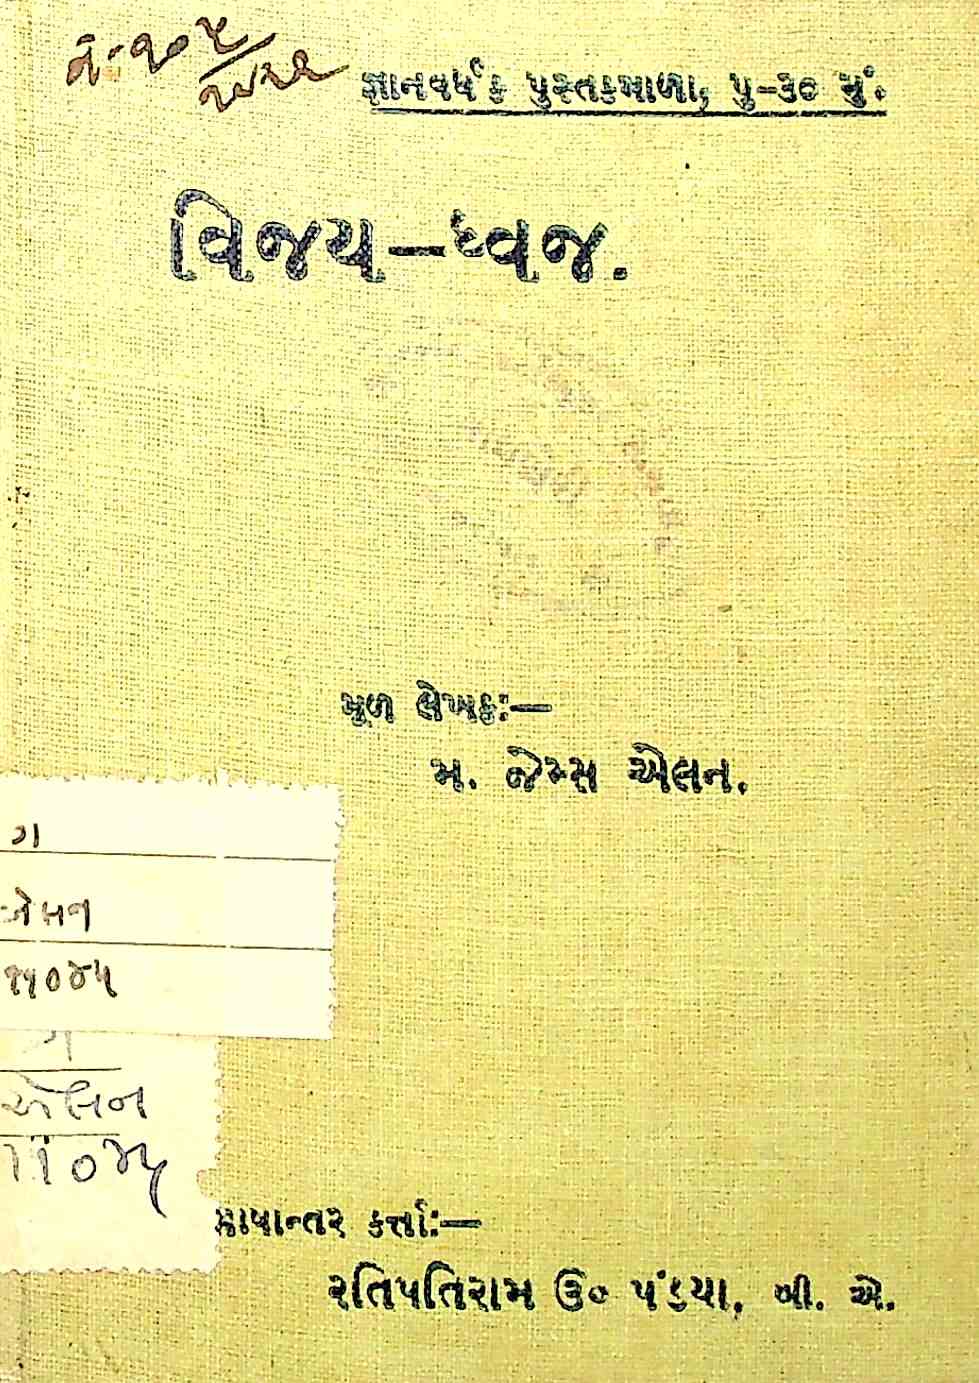 જ્ઞાનવર્ધક પુસ્તકમાળા, પુ-૩૦ મું.
વિજય-ધ્વજ.
મૂળ લેખક:—
મ. જેમ્સ એલન.
ગ
એલન
૧૧૦૪૫
ગ
એલન
૧૧૦૪૫
ભાષાન્તર કર્ત્તા:—
રતિપતિરામ ઉ૦ પંડયા, બી. એ.